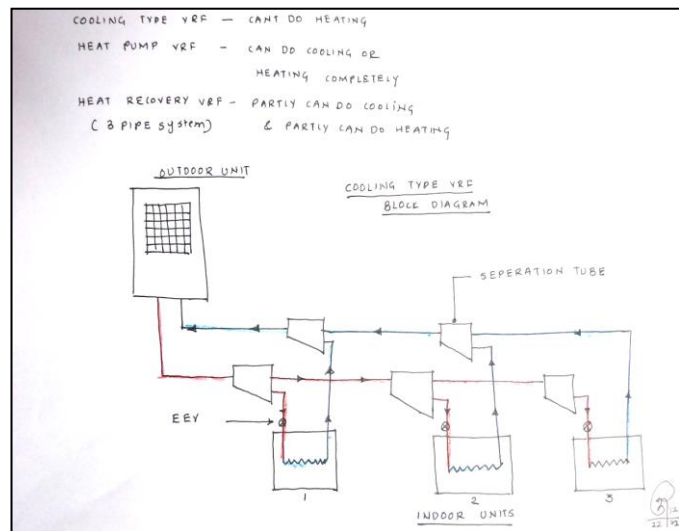 COOLING TYPE VRF — CANT DO HEATING
HEAT PUMP VRF — CAN DO COOLING OR
HEATING COMPLETELY
HEAT RECOVERY VRF - PARTLY CAN DO COOLING
(3 PIPE system) & PARTLY CAN DO HEATING
OUTDOOR UNIT
COOLING TYPE VRF
BLOCK DIAGRAM
SEPERATION TUBE
EEV
1
2
3
INDOOR UNITS